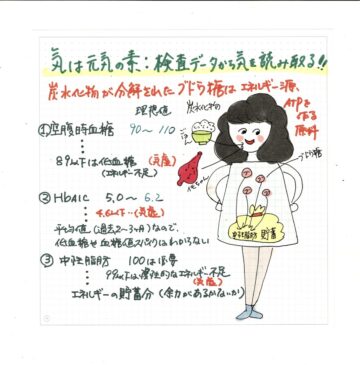 気は元気の素：検査データから気を読み取る!!
炭水化物が分解されたブドウ糖はエネルギー源、
ATPを作る原料
理想値
炭水化物
ごはん
①空腹時血糖 90〜110
89以下は低血糖（気虚）
（エネルギー不足）
芋ちゃん
ブドウ糖
②HbA1c 5.0〜6.2
4.6以下…（気虚）
平均値（過去2〜3ヶ月）なので、
低血糖や血糖値スパイクはわからない
中性脂肪 貯蓄
③中性脂肪 100は必要
99以下は慢性的なエネルギー不足
（気虚）
エネルギーの貯蓄分（余力があるかないか）